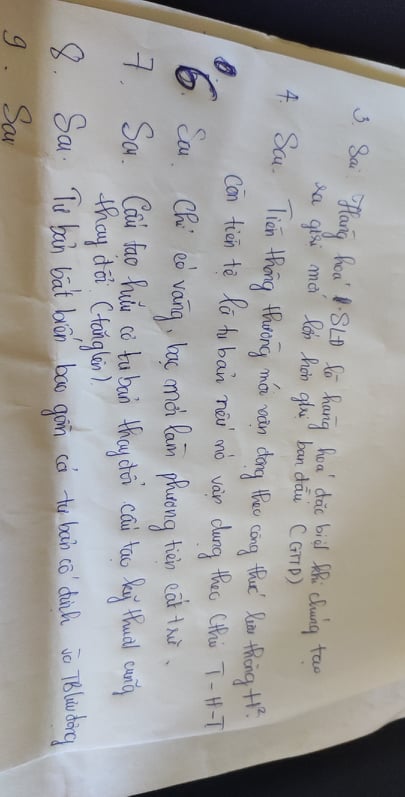 3. Sai. Hàng hoá SLĐ là hàng hoá đặc biệt khi chúng tạo
ra giá trị mới lớn hơn giá trị ban đầu (GTTD)
4. Sai. Tiền thông thường mới vận động theo công thức lưu thông H².
Còn tiền tệ là tư bản nếu nó vận dụng theo cthức T-H-T
6. Sai. Chỉ có vàng, bạc mới làm phương tiện cất trữ.
7. Sai. Cấu tạo hữu cơ tư bản thay đổi cấu tạo kỹ thuật cũng
thay đổi (tăng lên).
8. Sai. Tư bản bất biến bao gồm cả tư bản cố định và TB lưu động
9. Sai